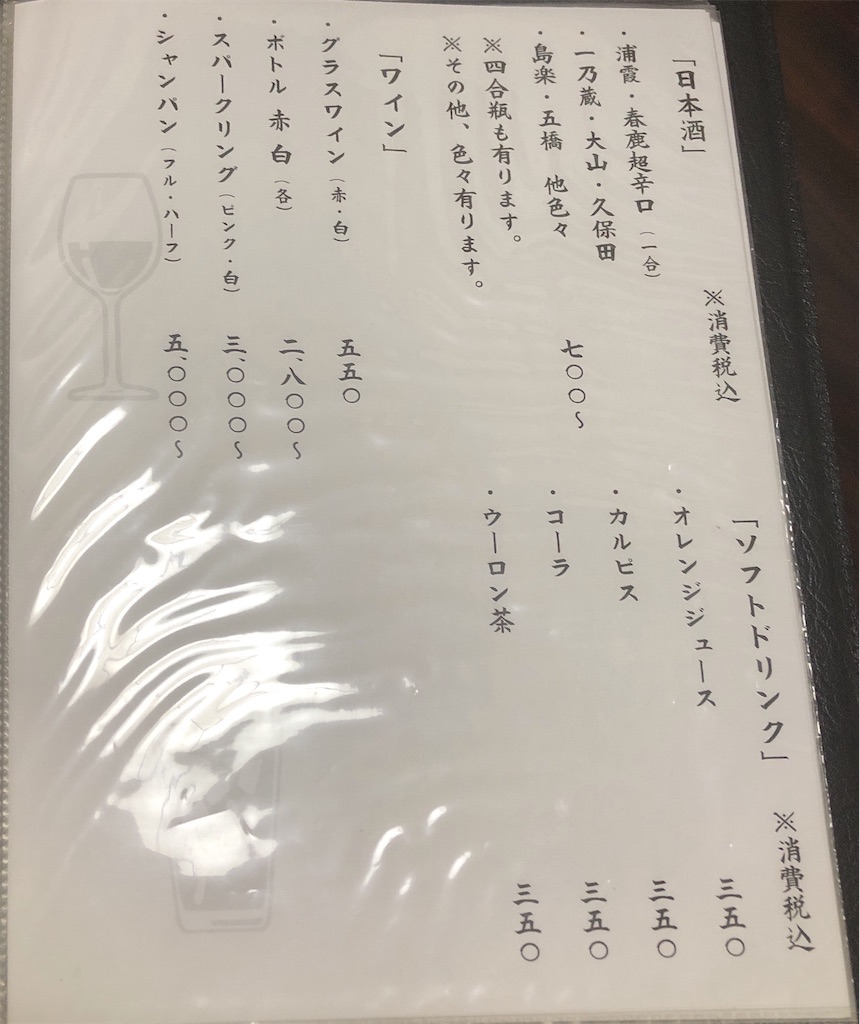 「日本酒」
※消費税込
・浦霞・春鹿超辛口（一合）
・一乃蔵・大山・久保田
七〇〇～
・島楽・五橋 他色々
※四合瓶も有ります。
※その他、色々有ります。
「ワイン」
・グラスワイン（赤・白）
五五〇
・ボトル 赤 白（各）
二、八〇〇～
・スパークリング（ピンク・白）
三、〇〇〇～
・シャンパン（フル・ハーフ）
五、〇〇〇～
「ソフトドリンク」
※消費税込
・オレンジジュース
三五〇
・カルピス
三五〇
・コーラ
三五〇
・ウーロン茶
三五〇